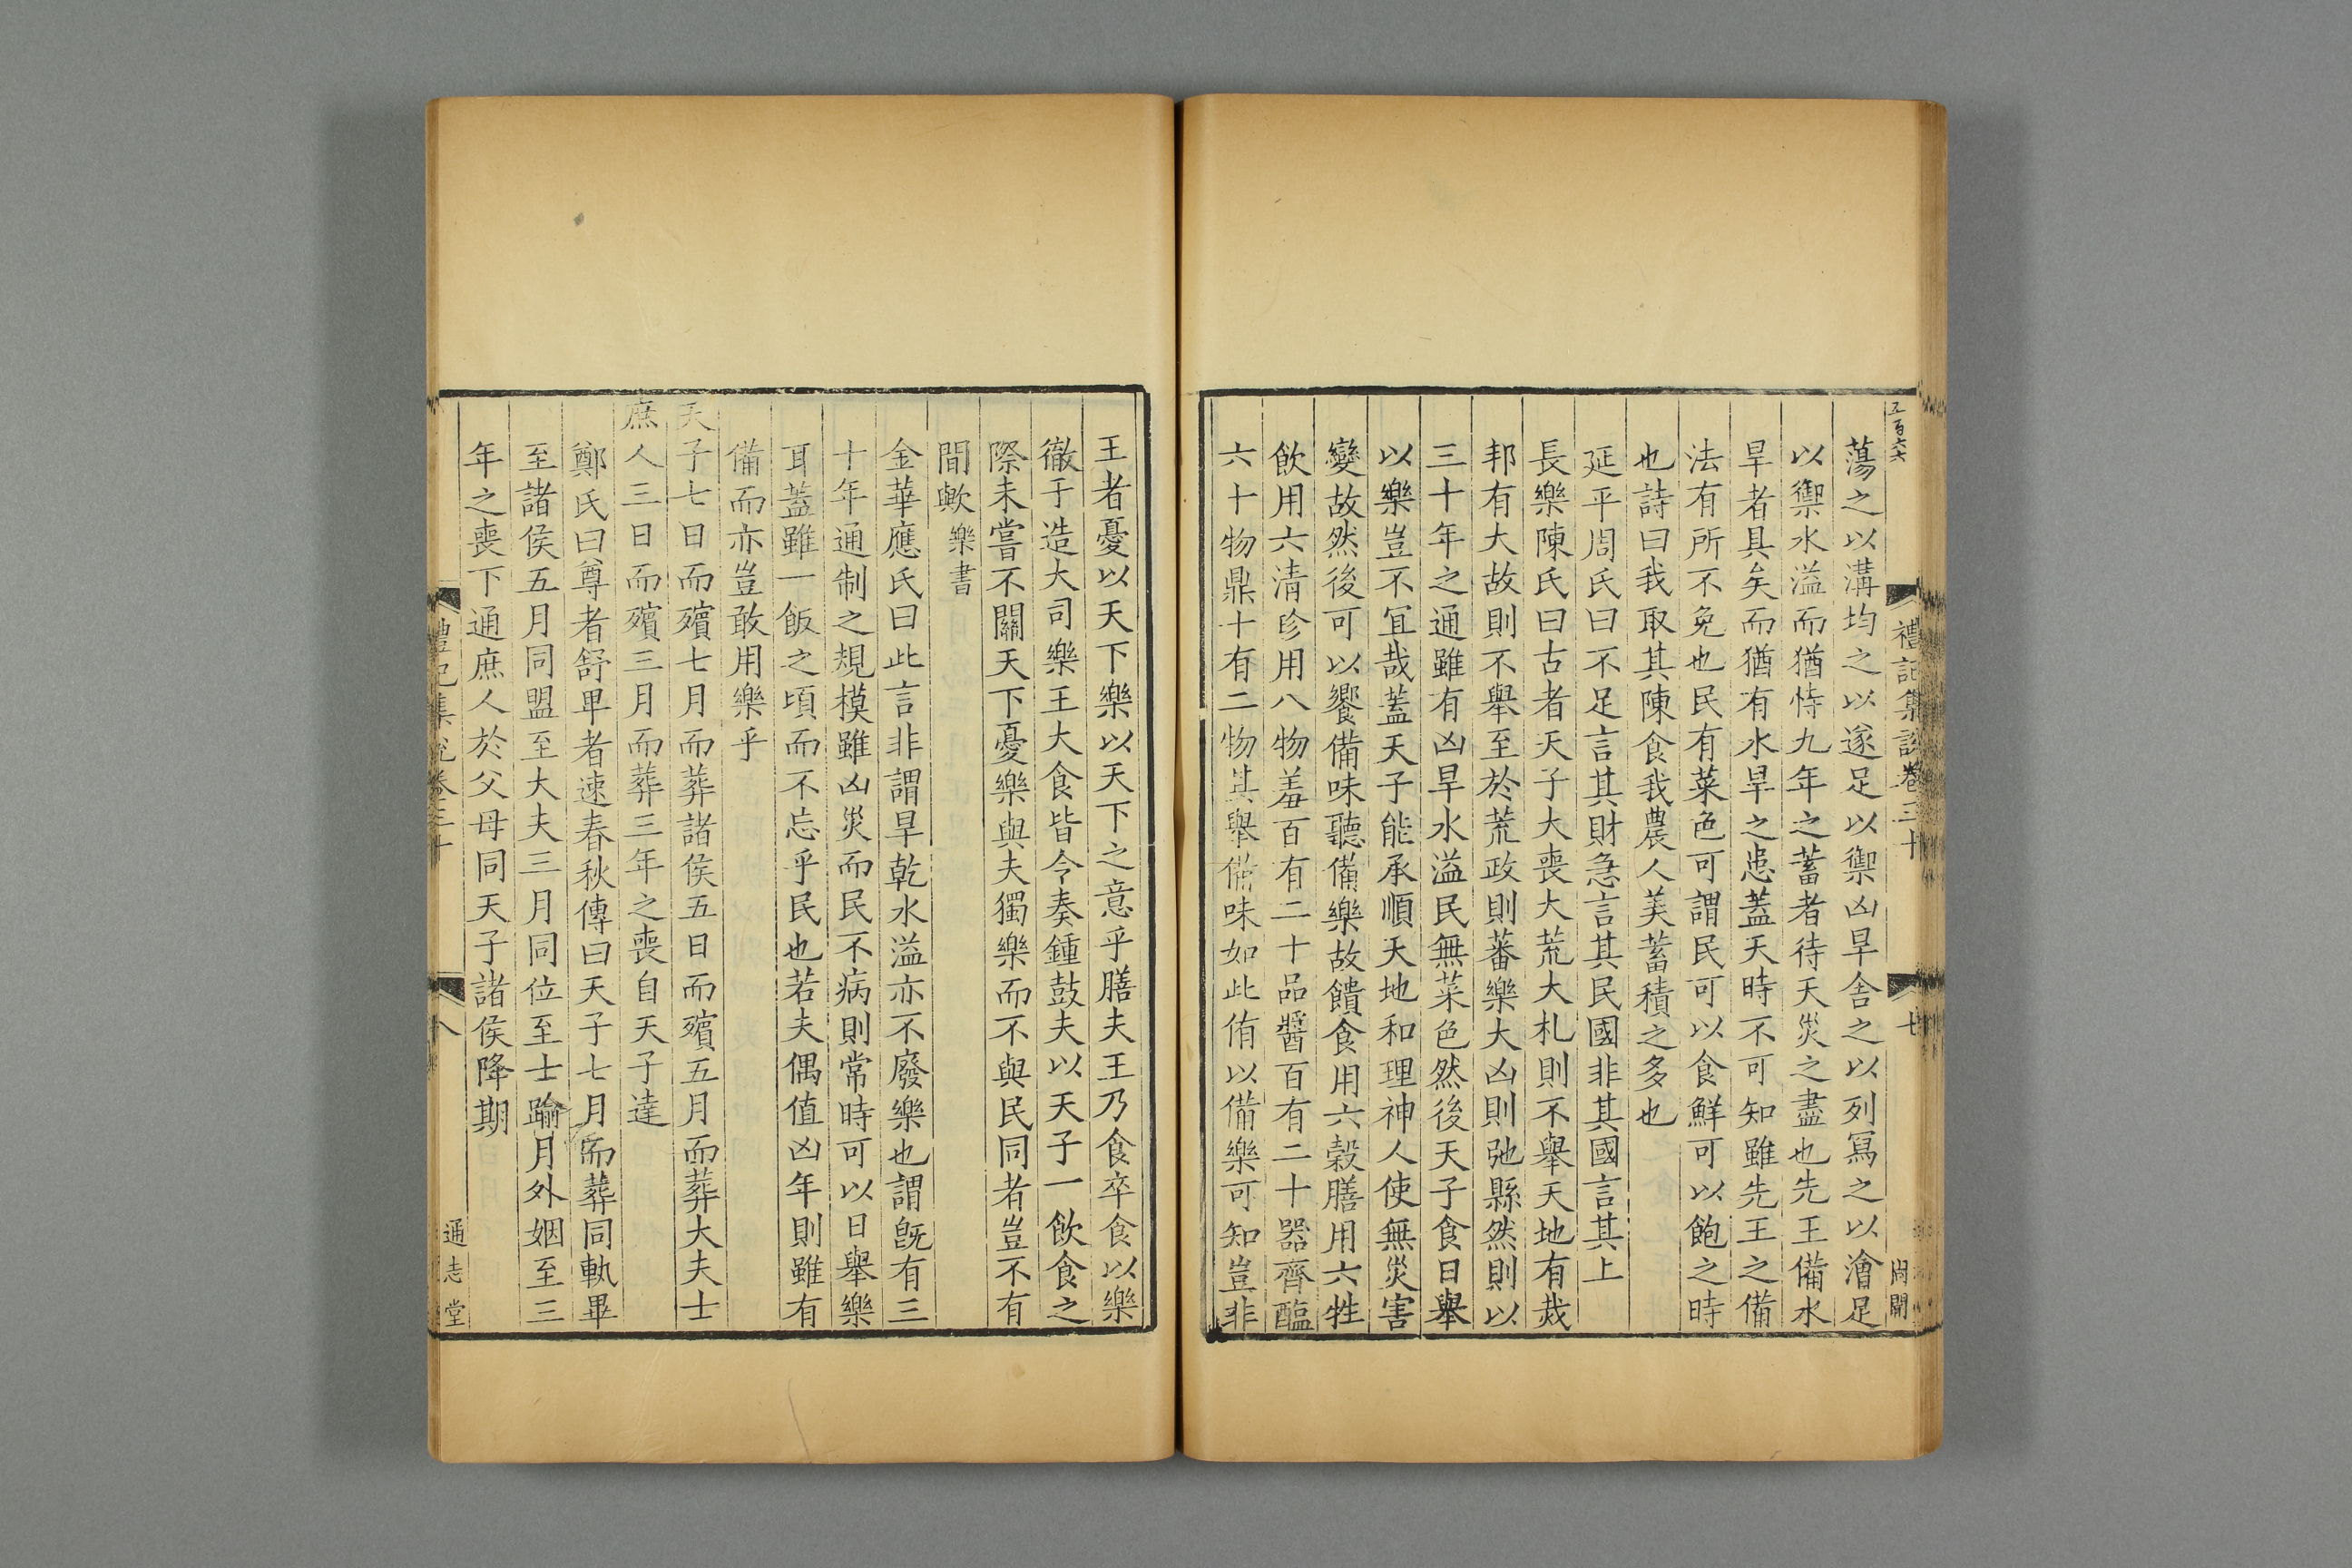 五百六六
禮記集說卷三十
七
尚開
蕩之以溝均之以遂足以禦凶旱舍之以列寫之以澮足
以禦水溢而猶恃九年之蓄者待天災之盡也先王備水
旱者具矣而猶有水旱之患蓋天時不可知雖先王之備
法有所不免也民有菜色可謂民可以食鮮可以飽之時
也詩曰我取其陳食我農人美蓄積之多也
延平周氏曰不足言其財急言其民國非其國言其上
長樂陳氏曰古者天子大喪大荒大札則不舉天地有烖
邦有大故則不舉至於荒政則蕃樂大凶則弛縣然則以
三十年之通雖有凶旱水溢民無菜色然後天子食日舉
以樂豈不宜哉蓋天子能承順天地和理神人使無災害
變故然後可以饗備味聽備樂故饋食用六穀膳用六牲
飲用六清珍用八物羞百有二十品醬百有二十器齊醢
六十物鼎十有二物其舉備味如此侑以備樂可知豈非
王者憂以天下樂以天下之意乎膳夫王乃食卒食以樂
徹于造大司樂王大食皆令奏鍾鼓夫以天子一飲食之
際未嘗不關天下憂樂與夫獨樂而不與民同者豈不有
間歟樂書
金華應氏曰此言非謂旱乾水溢亦不廢樂也謂旣有三
十年通制之規模雖凶災而民不病則常時可以日舉樂
耳蓋雖一飯之頃而不忘乎民也若夫偶值凶年則雖有
備而亦豈敢用樂乎
天子七日而殯七月而葬諸侯五日而殯五月而葬大夫士
庶人三日而殯三月而葬三年之喪自天子達
鄭氏曰尊者舒卑者速春秋傳曰天子七月而葬同軌畢
至諸侯五月同盟至大夫三月同位至士踰月外姻至三
年之喪下通庶人於父母同天子諸侯降期
禮記集說卷三十
十八
通志堂